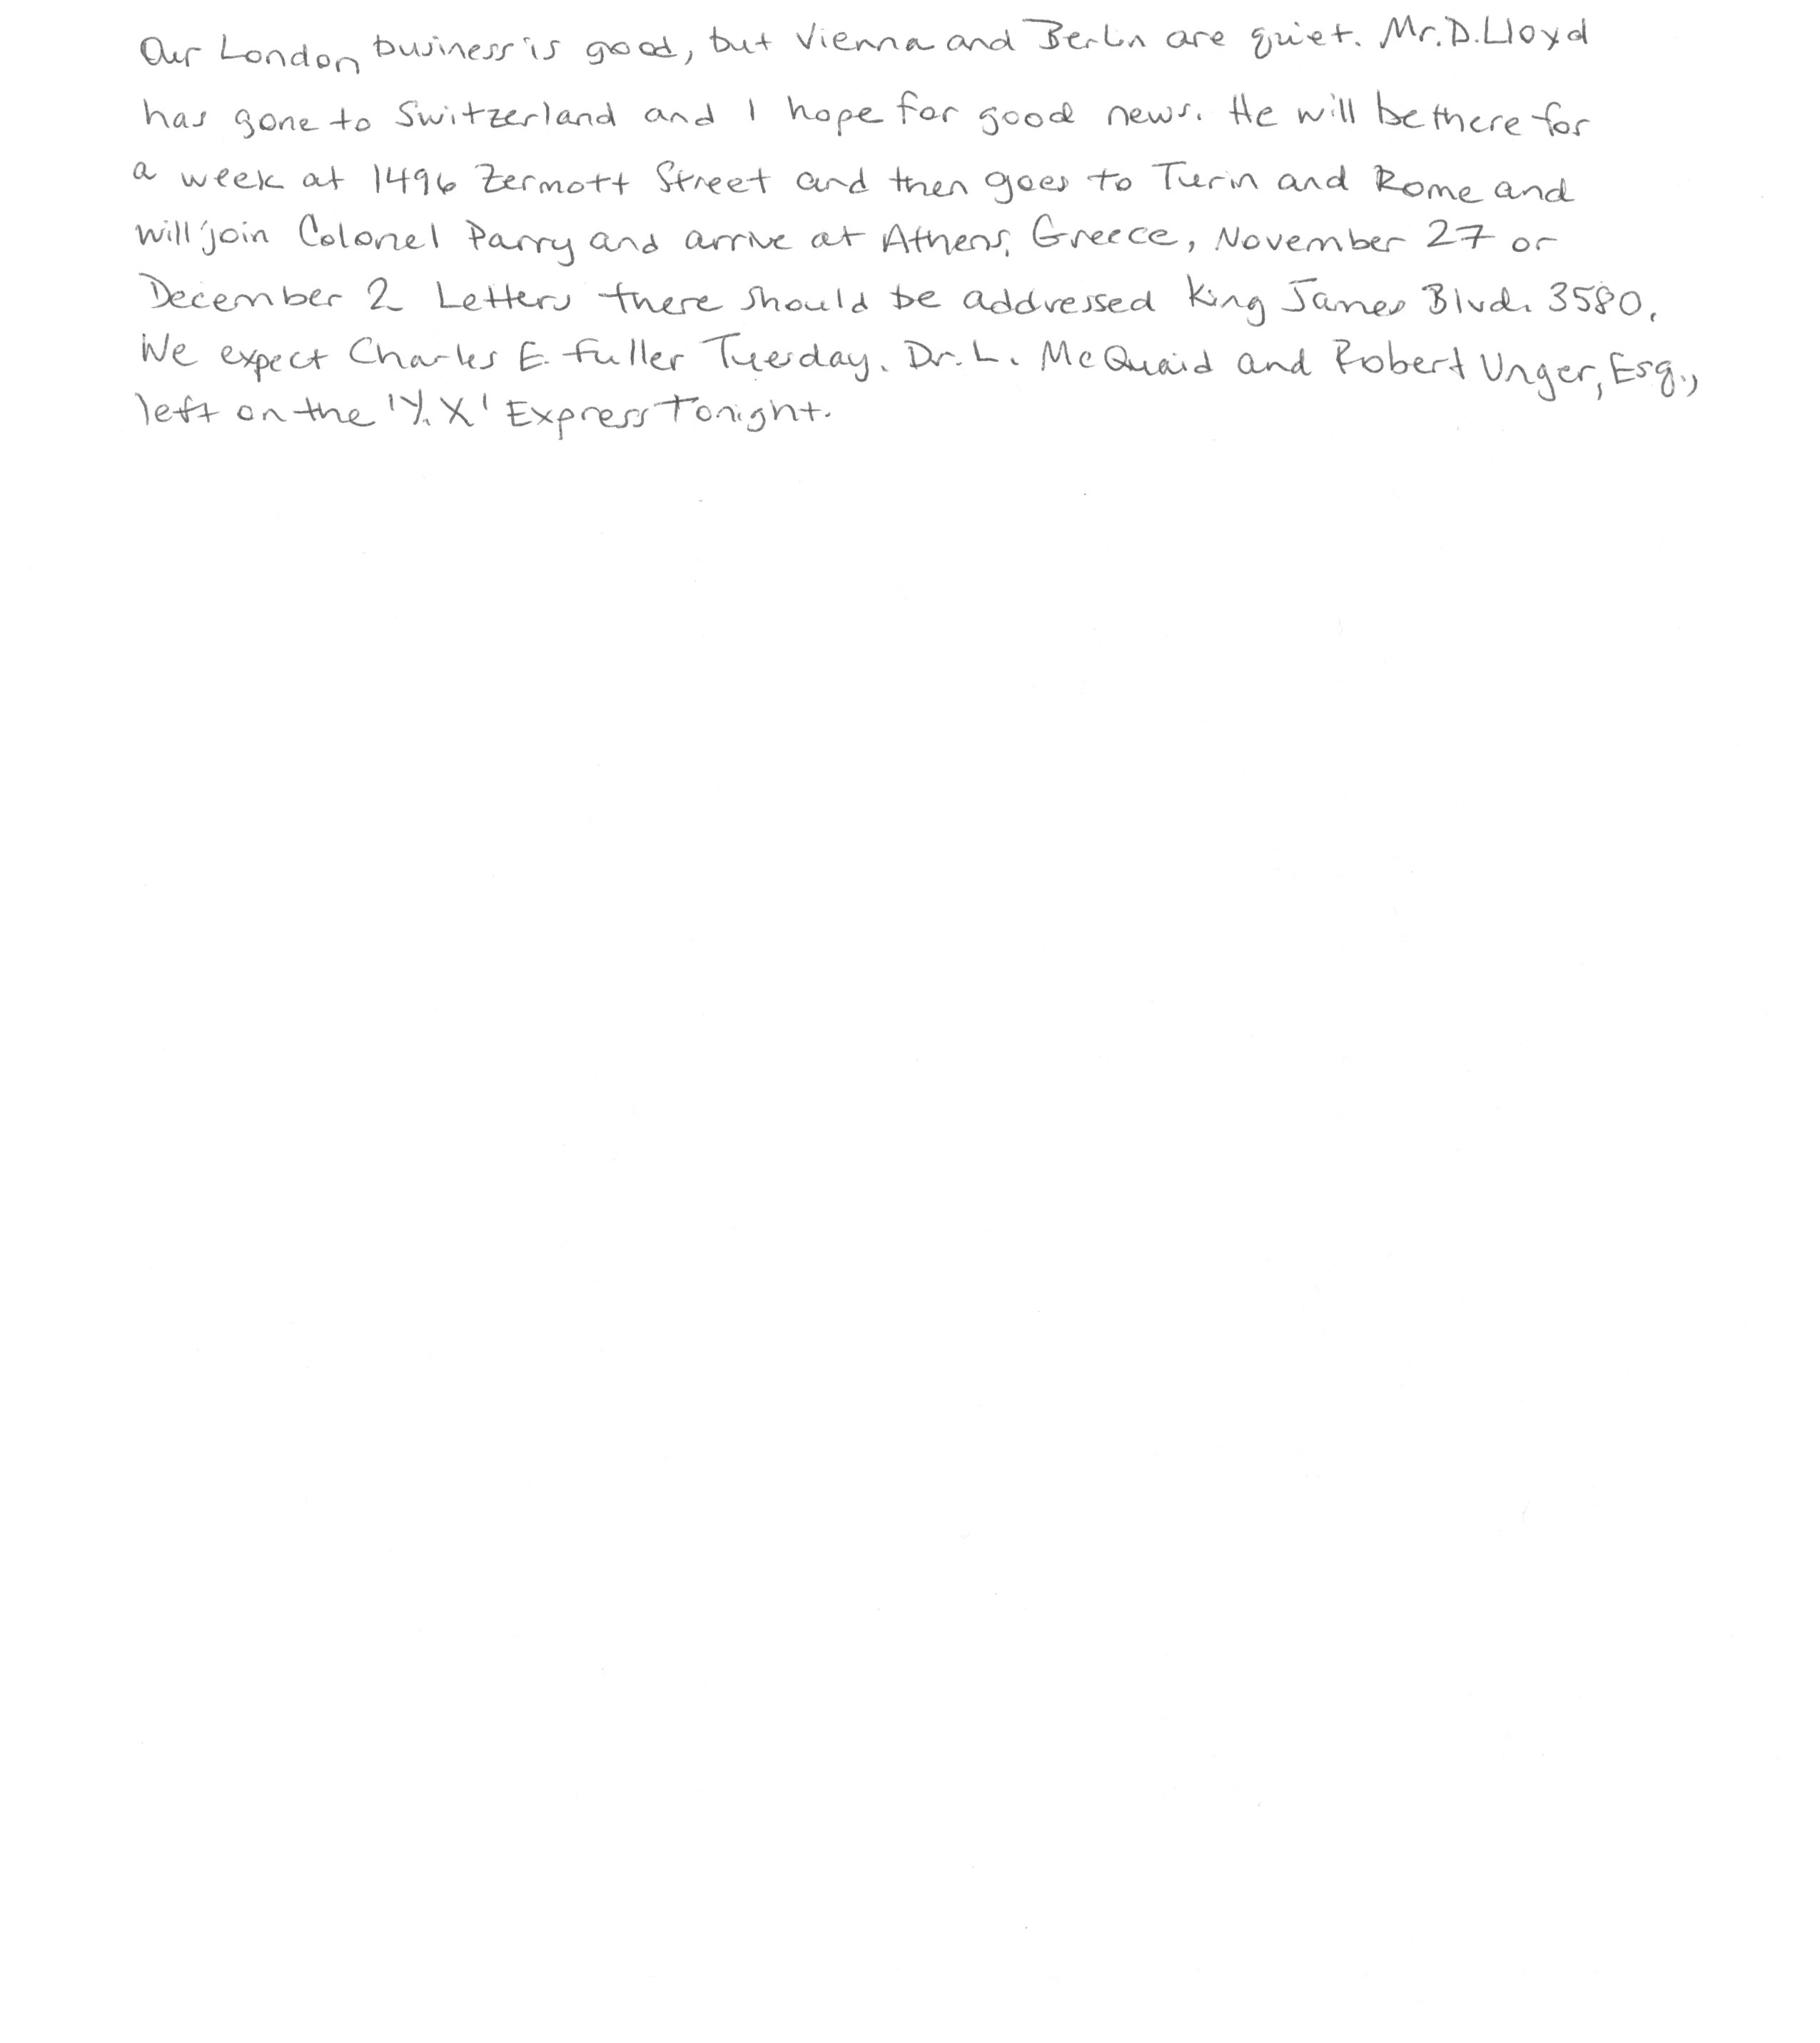 Our London business is good, but Vienna and Berlin are quiet. Mr. D. Lloyd
has gone to Switzerland and I hope for good news. He will be there for
a week at 1496 Zermott Street and then goes to Turin and Rome and
will join Colonel Parry and arrive at Athens, Greece, November 27 or
December 2 Letters there should be addressed King James Blvd. 3580.
We expect Charles E. Fuller Tuesday. Dr. L. McQuaid and Robert Unger, Esq.,
left on the 'Y. X' Express Tonight.